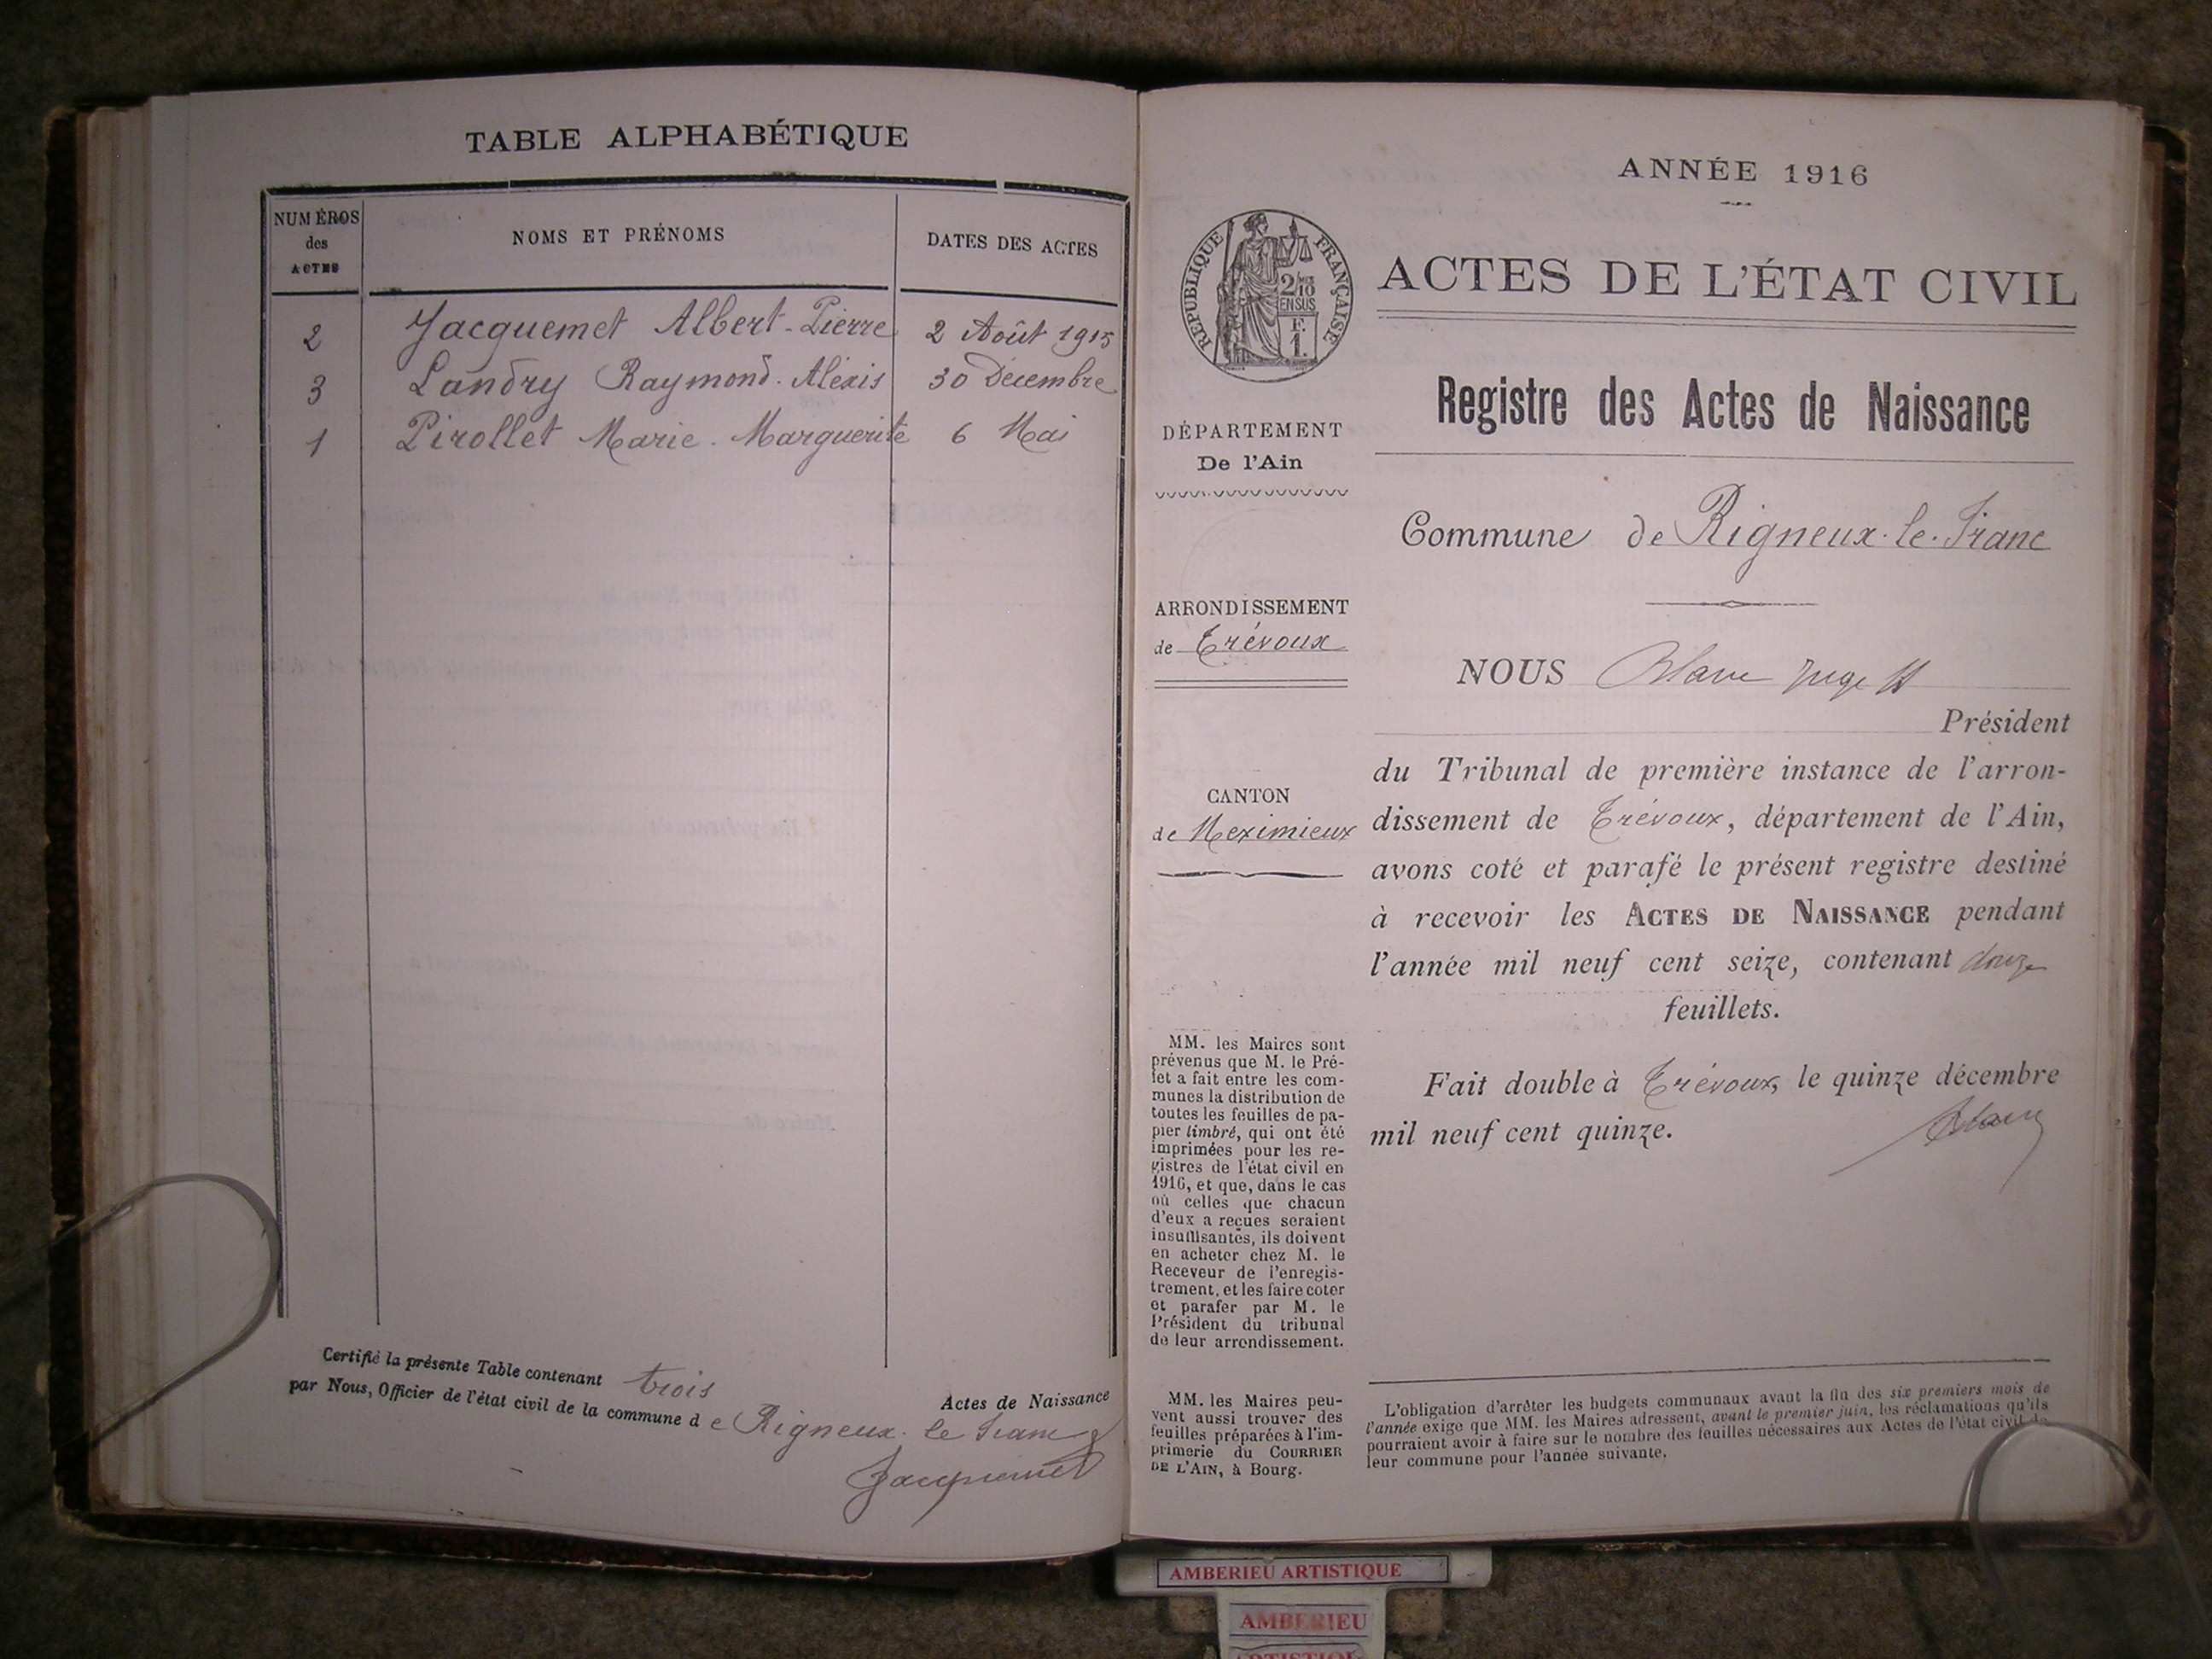 TABLE ALPHABÉTIQUE
NUMÉROS
des
ACTES
NOMS ET PRÉNOMS
DATES DES ACTES
2 Jacquemet Albert-Pierre 2 Août 1915
3 Landry Raymond-Alexis 30 Décembre
1 Pirollet Marie-Marguerite 6 Mai
Certifié la présente Table contenant trois Actes de Naissance
par Nous, Officier de l'état civil de la commune de Rigneux-le-Franc
Jacquemet
ANNÉE 1916
RÉPUBLIQUE FRANÇAISE
2/10
EN SUS
F.
1.
ACTES DE L'ÉTAT CIVIL
Registre des Actes de Naissance
DÉPARTEMENT
De l'Ain
Commune de Rigneux-le-Franc
ARRONDISSEMENT
de Trévoux
CANTON
de Meximieux
NOUS Blanc Juge
Président
du Tribunal de première instance de l'arron-
dissement de Trévoux, département de l'Ain,
avons coté et parafé le présent registre destiné
à recevoir les ACTES DE NAISSANCE pendant
l'année mil neuf cent seize, contenant douze
feuillets.
Fait double à Trévoux, le quinze décembre
mil neuf cent quinze.
Blanc
MM. les Maires sont
prévenus que M. le Pré-
fet a fait entre les com-
munes la distribution de
toutes les feuilles de pa-
pier timbré, qui ont été
imprimées pour les re-
gistres de l'état civil en
1916, et que, dans le cas
où celles que chacun
d'eux a reçues seraient
insuffisantes, ils doivent
en acheter chez M. le
Receveur de l'enregis-
trement, et les faire coter
et parafer par M. le
Président du tribunal
de leur arrondissement.
MM. les Maires peu-
vent aussi trouver des
feuilles préparées à l'im-
primerie du COURRIER
DE L'AIN, à Bourg.
L'obligation d'arrêter les budgets communaux avant la fin des six premiers mois de
l'année exige que MM. les Maires adressent, avant le premier juin, les réclamations qu'ils
pourraient avoir à faire sur le nombre des feuilles nécessaires aux Actes de l'état civil de
leur commune pour l'année suivante.
AMBERIEU ARTISTIQUE
AMBERIEU
ARTISTIQUE